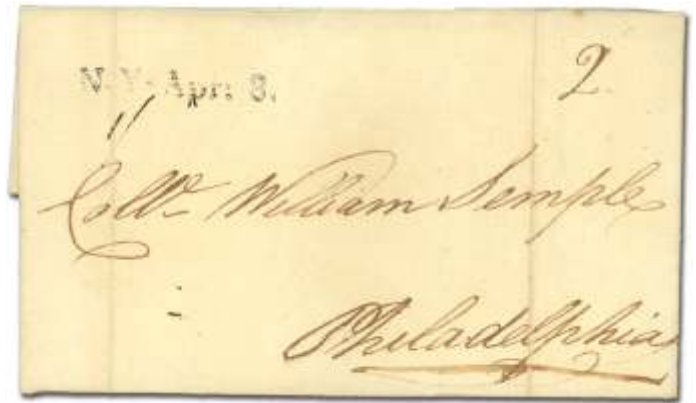 N.Y: Apr: 8.
2.
William Semple
Philadelphia